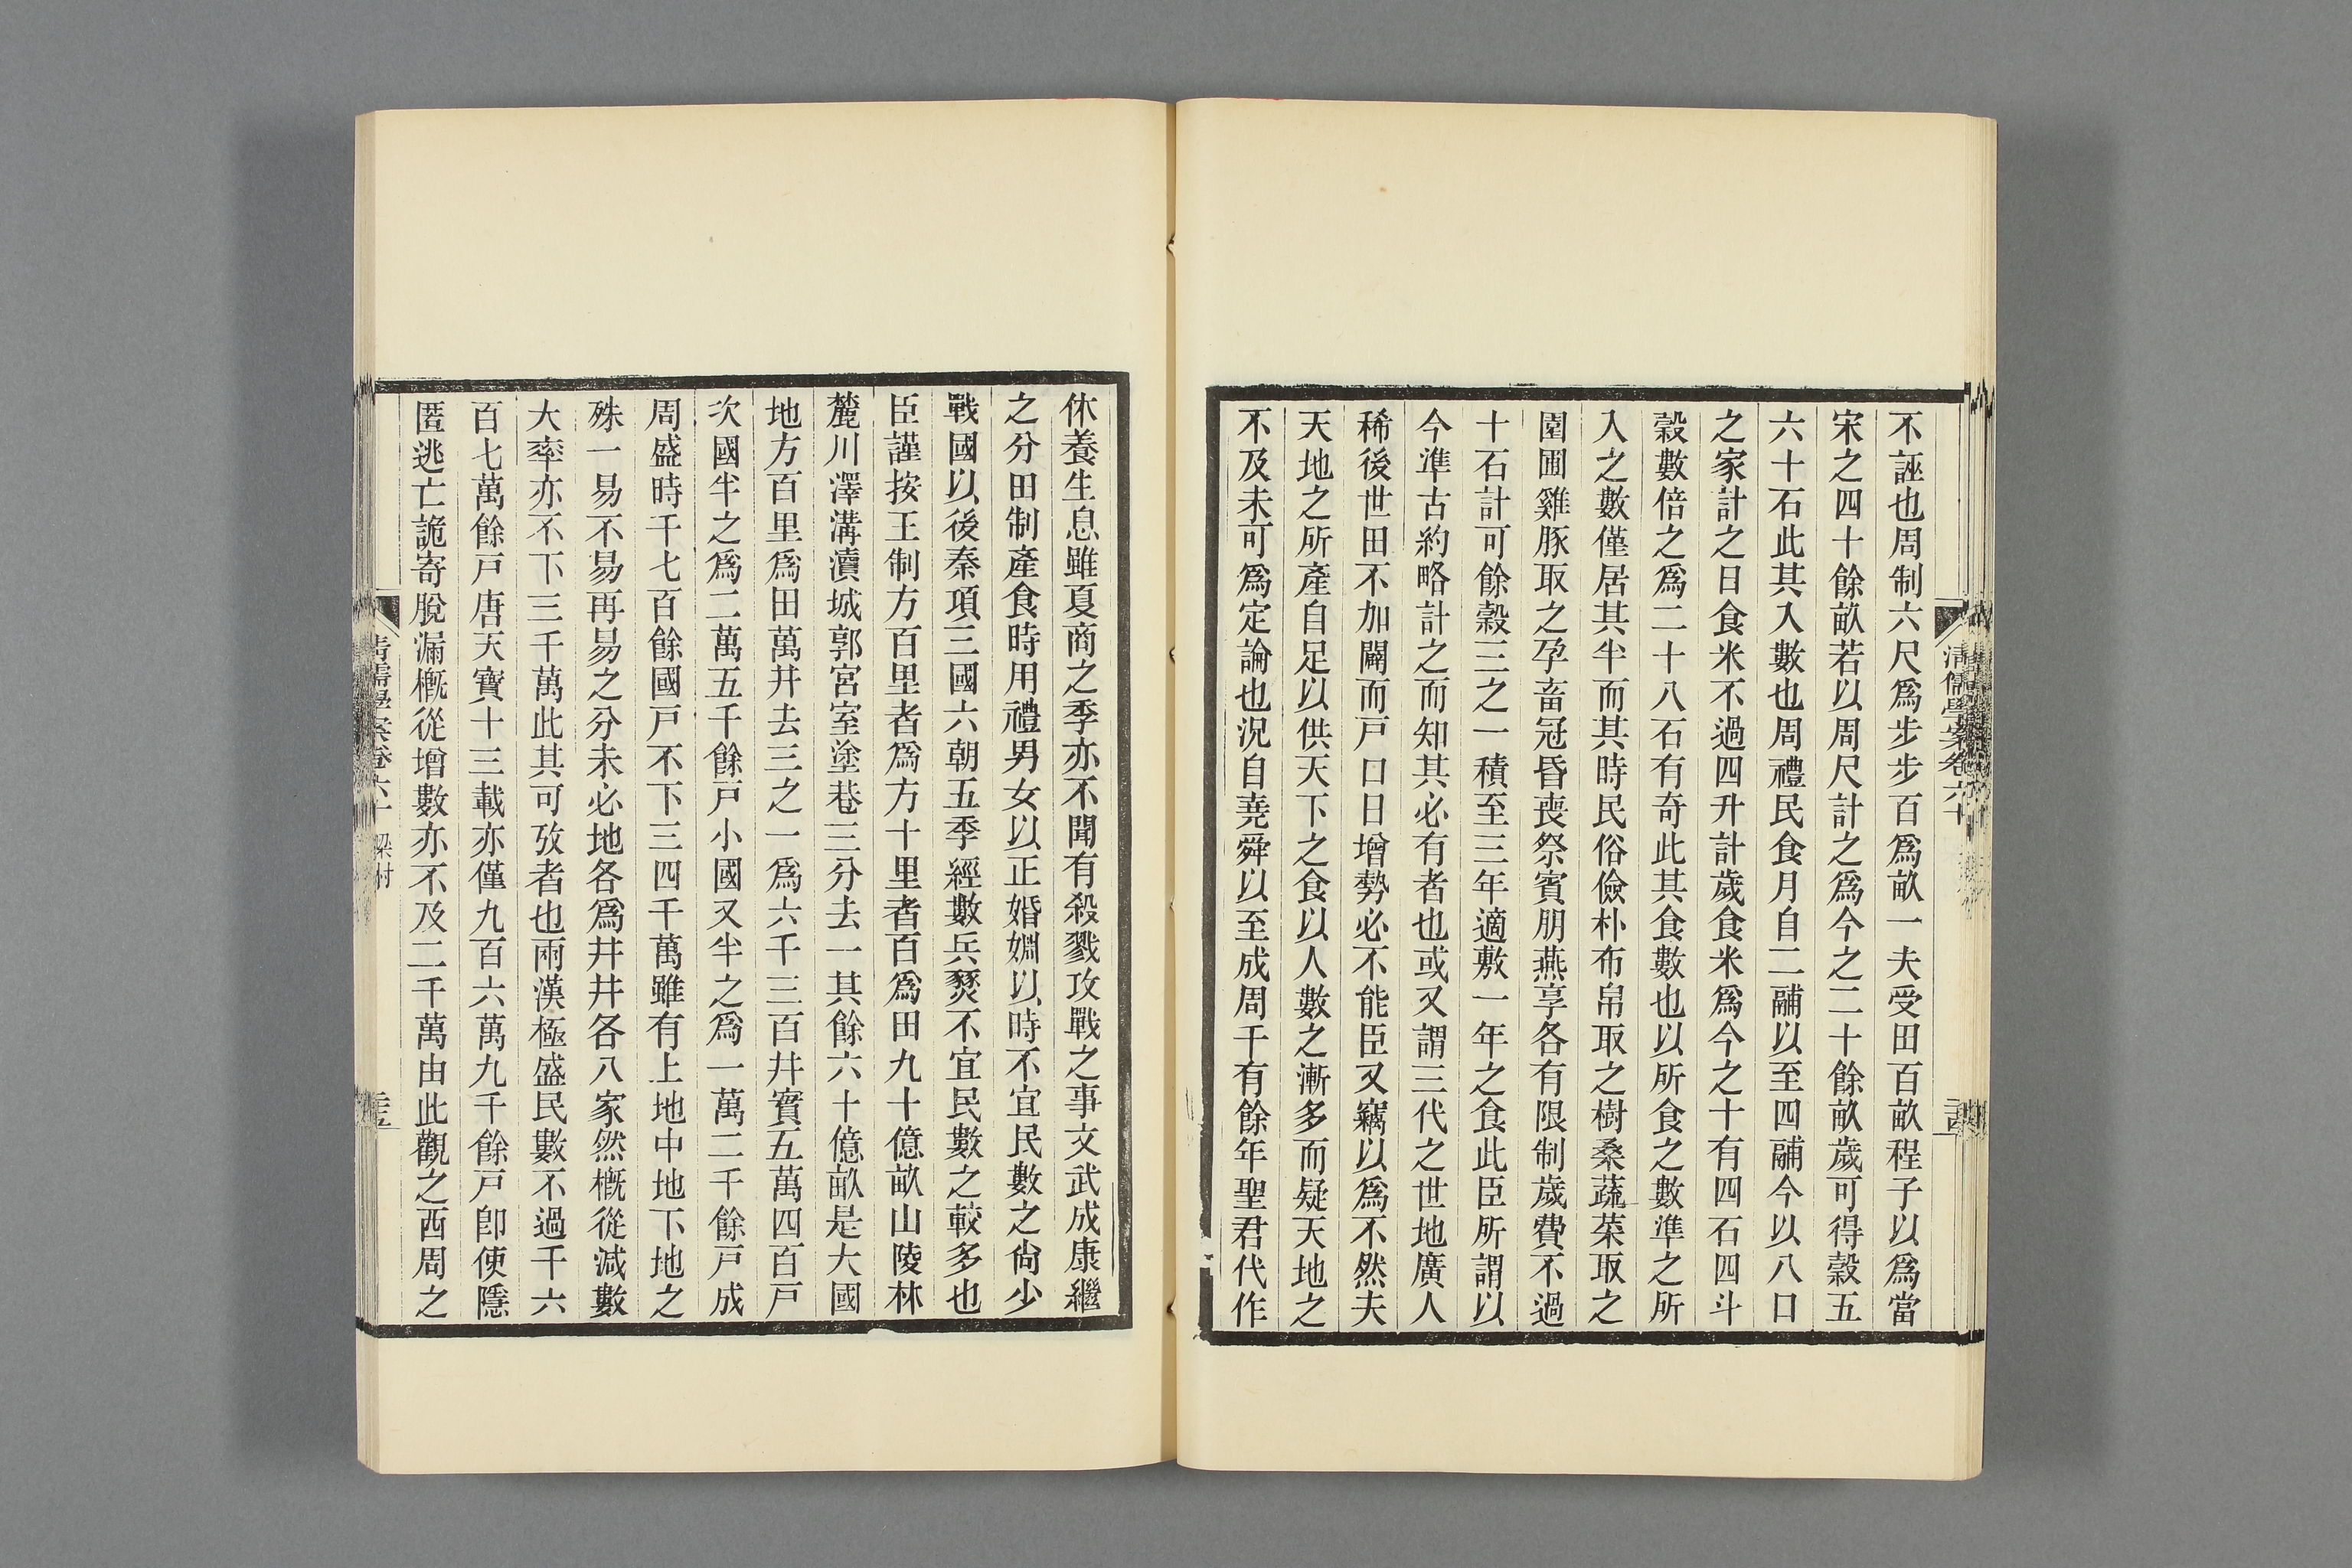 不誣也周制六尺爲步步百爲畝一夫受田百畝程子以爲當
宋之四十餘畝若以周尺計之爲今之二十餘畝歲可得穀五
六十石此其入數也周禮民食月自二鬴以至四鬴今以八口
之家計之日食米不過四升計歲食米爲今之十有四石四斗
穀數倍之爲二十八石有奇此其食數也以所食之數準之所
入之數僅居其半而其時民俗儉朴布帛取之樹桑蔬菜取之
園圃雞豚取之孕畜冠昏喪祭賓朋燕享各有限制歲費不過
十石計可餘穀三之一積至三年適敷一年之食此臣所謂以
今準古約略計之而知其必有者也或又謂三代之世地廣人
稀後世田不加闢而戸口日增勢必不能臣又竊以爲不然夫
天地之所產自足以供天下之食以人數之漸多而疑天地之
不及未可爲定論也況自堯舜以至成周千有餘年聖君代作
清儒學案卷六十
休養生息雖夏商之季亦不聞有殺戮攻戰之事文武成康繼
之分田制產食時用禮男女以正婚姻以時不宜民數之尙少
戰國以後秦項三國六朝五季經數兵燹不宜民數之較多也
臣謹按王制方百里者爲方十里者百爲田九十億畝山陵林
麓川澤溝瀆城郭宮室塗巷三分去一其餘六十億畝是大國
地方百里爲田萬井去三之一爲六千三百井實五萬四百戸
次國半之爲二萬五千餘戸小國又半之爲一萬二千餘戸成
周盛時千七百餘國戸不下三四千萬雖有上地中地下地之
殊一易不易再易之分未必地各爲井井各八家然槪從減數
大率亦不下三千萬此其可攷者也兩漢極盛民數不過千六
百七萬餘戸唐天寶十三載亦僅九百六萬九千餘戸卽使隱
匿逃亡詭寄脫漏槪從增數亦不及二千萬由此觀之西周之
清儒學案卷六十 梁村